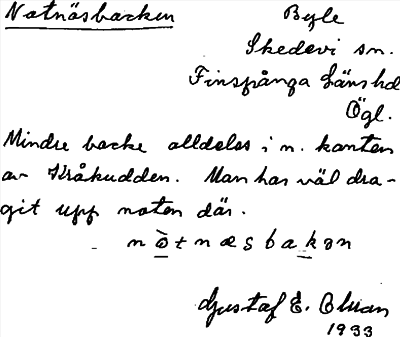 Notnäsbacken
Byle
Skedevi sn.
Finspånga länshd
Ögl.
Mindre backe alldeles i n. kanten
av Kråkudden. Man har väl dra-
git upp noten där.
nòtnæsbakən
Gustaf E.
1933